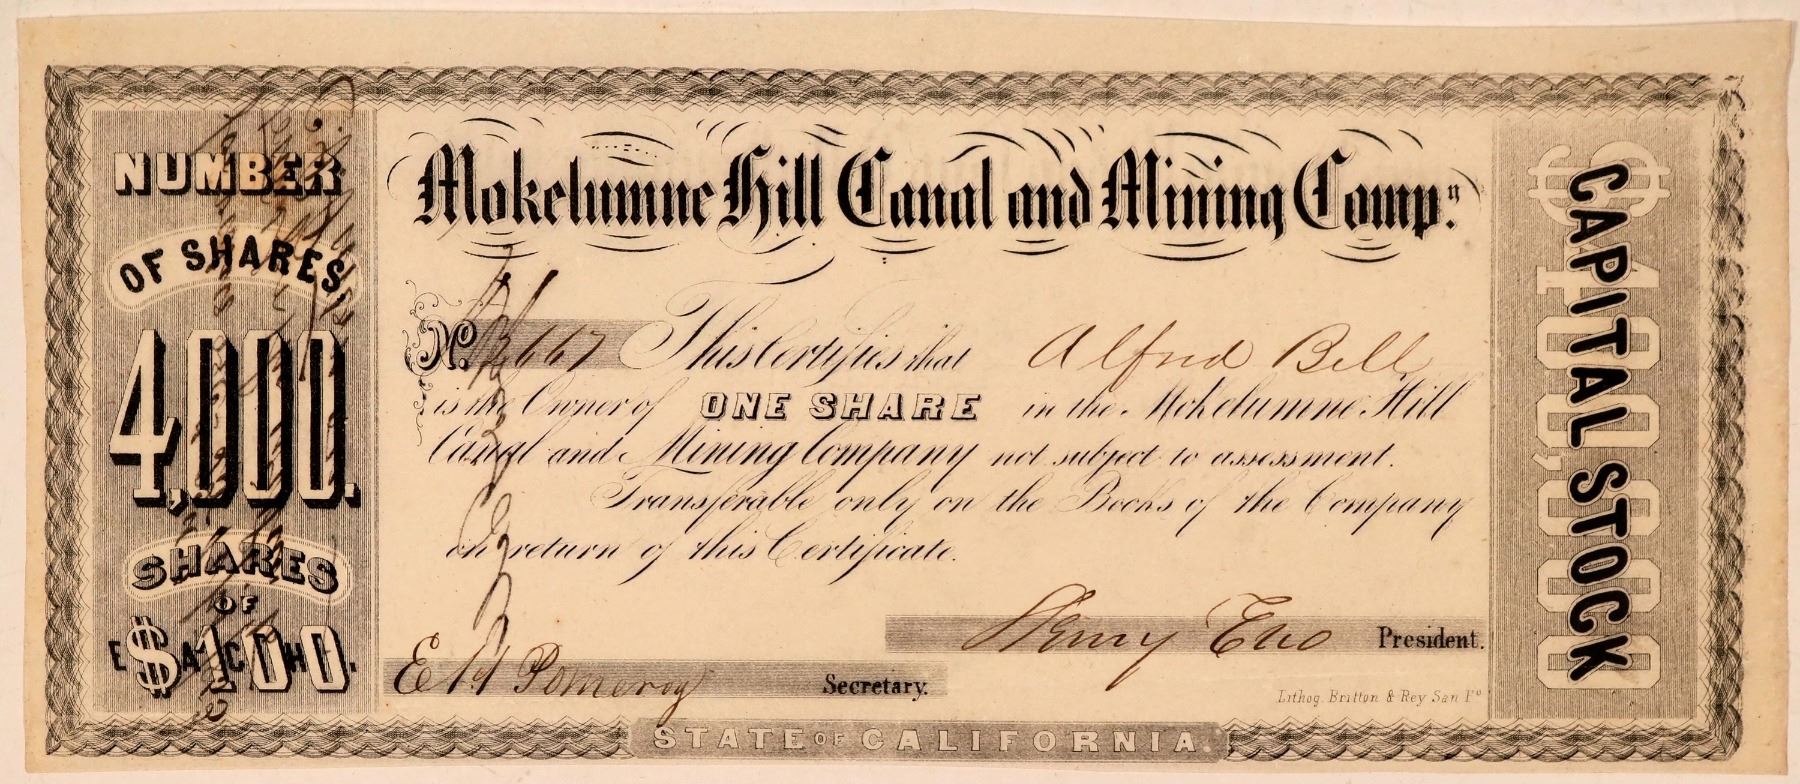 NUMBER
OF SHARES,
4,000.
SHARES
OF
$100.
EACH
Mokelumne Hill Canal and Mining Compy.
No. 667 This Certifies that Alfred Bell
is the Owner of ONE SHARE in the Mokelumne Hill
Canal and Mining Company not subject to assessment.
Transferable only on the Books of the Company
on return of this Certificate.
Henry Eno President.
Pomeroy Secretary.
Lithog. Britton & Rey San Fco
STATE OF CALIFORNIA.
CAPITAL STOCK
$400,000